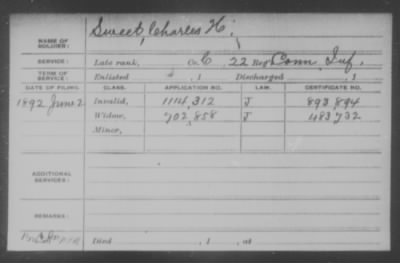 NAME OF SOLDIER: Sweet, Charles H.
SERVICE: Late rank, Co. C, 22 Reg. Conn. Inf.
TERM OF SERVICE: Enlisted , 1 Discharged , 1
DATE OF FILING. CLASS. APPLICATION NO. LAW. CERTIFICATE NO.
1892 June 2 Invalid, 1114,312 J 893,894
Widow, 702,858 J 483,732
Minor,
ADDITIONAL SERVICES:
REMARKS:
Died , 1 , at